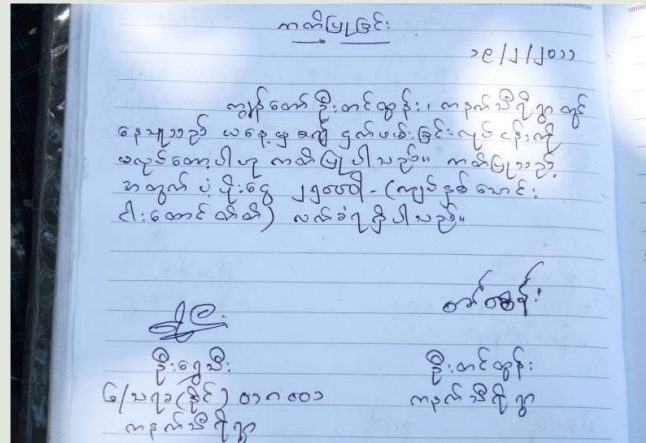 ကတိပြုခြင်း
၁၉/၂/၂၀၁၁
ကျွန်တော် ဦးတင်ထွန်း၊ ကနက်သီရိရွာတွင်
နေသူသည် ယနေ့မှစ၍ ငှက်ဖမ်းခြင်းလုပ်ငန်းကို
မလုပ်တော့ပါဟု ကတိပြုပါသည်။ ကတိပြုသည့်
အတွက် ပံ့ပိုးငွေ ၂၅၀၀၀ိ/- (ကျပ်နှစ်သောင်း
ငါးထောင်တိတိ) လက်ခံရရှိပါသည်။
တင်ထွန်း
ဦးရွှေသီး
ဦးတင်ထွန်း
ကနက်သီရိရွာ
ကနက်သီရိရွာ